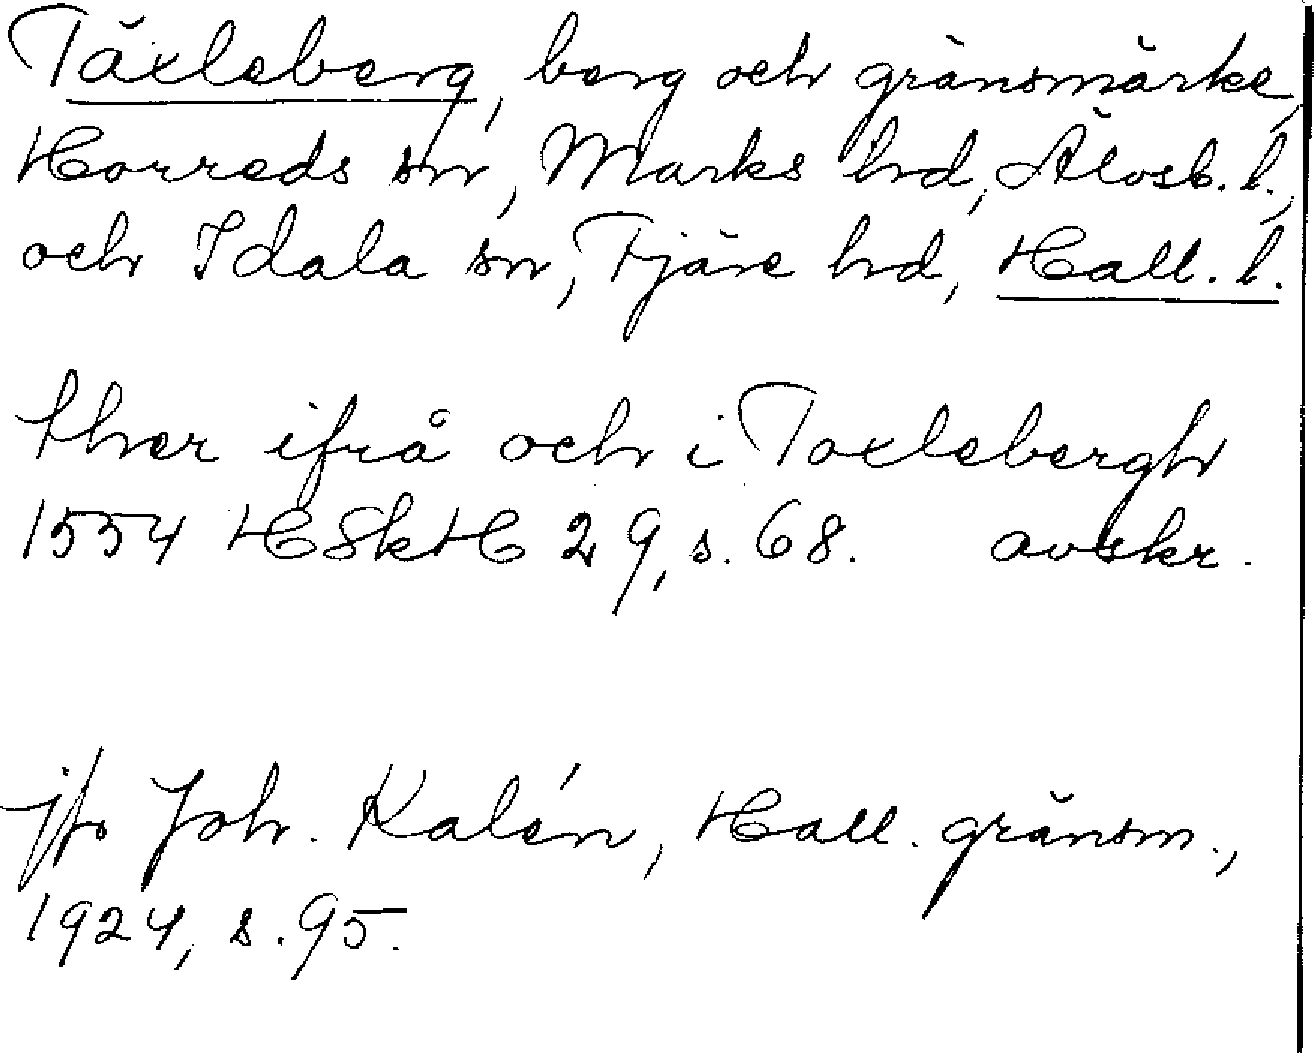 Täxleberg, berg och gränsmärke,
Horreds sn, Marks hrd, Älvsb. l.,
och Idala sn, Fjäre hrd, Hall. l.
ther ifrå och i Taxlebergh
1554 HSkH 29, s. 68. avskr.
jfr Joh. Kalén, Hall. gränsm.,
1924, s. 95.